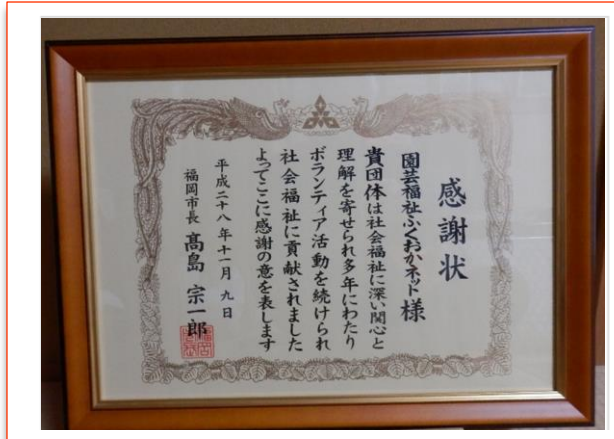 感謝状
園芸福祉ふくおかネット様
貴団体は社会福祉に深い関心と
理解を寄せられ多年にわたり
ボランティア活動を続けられ
社会福祉に貢献されました
よってここに感謝の意を表します
平成二十八年十一月九日
福岡市長 髙島宗一郎